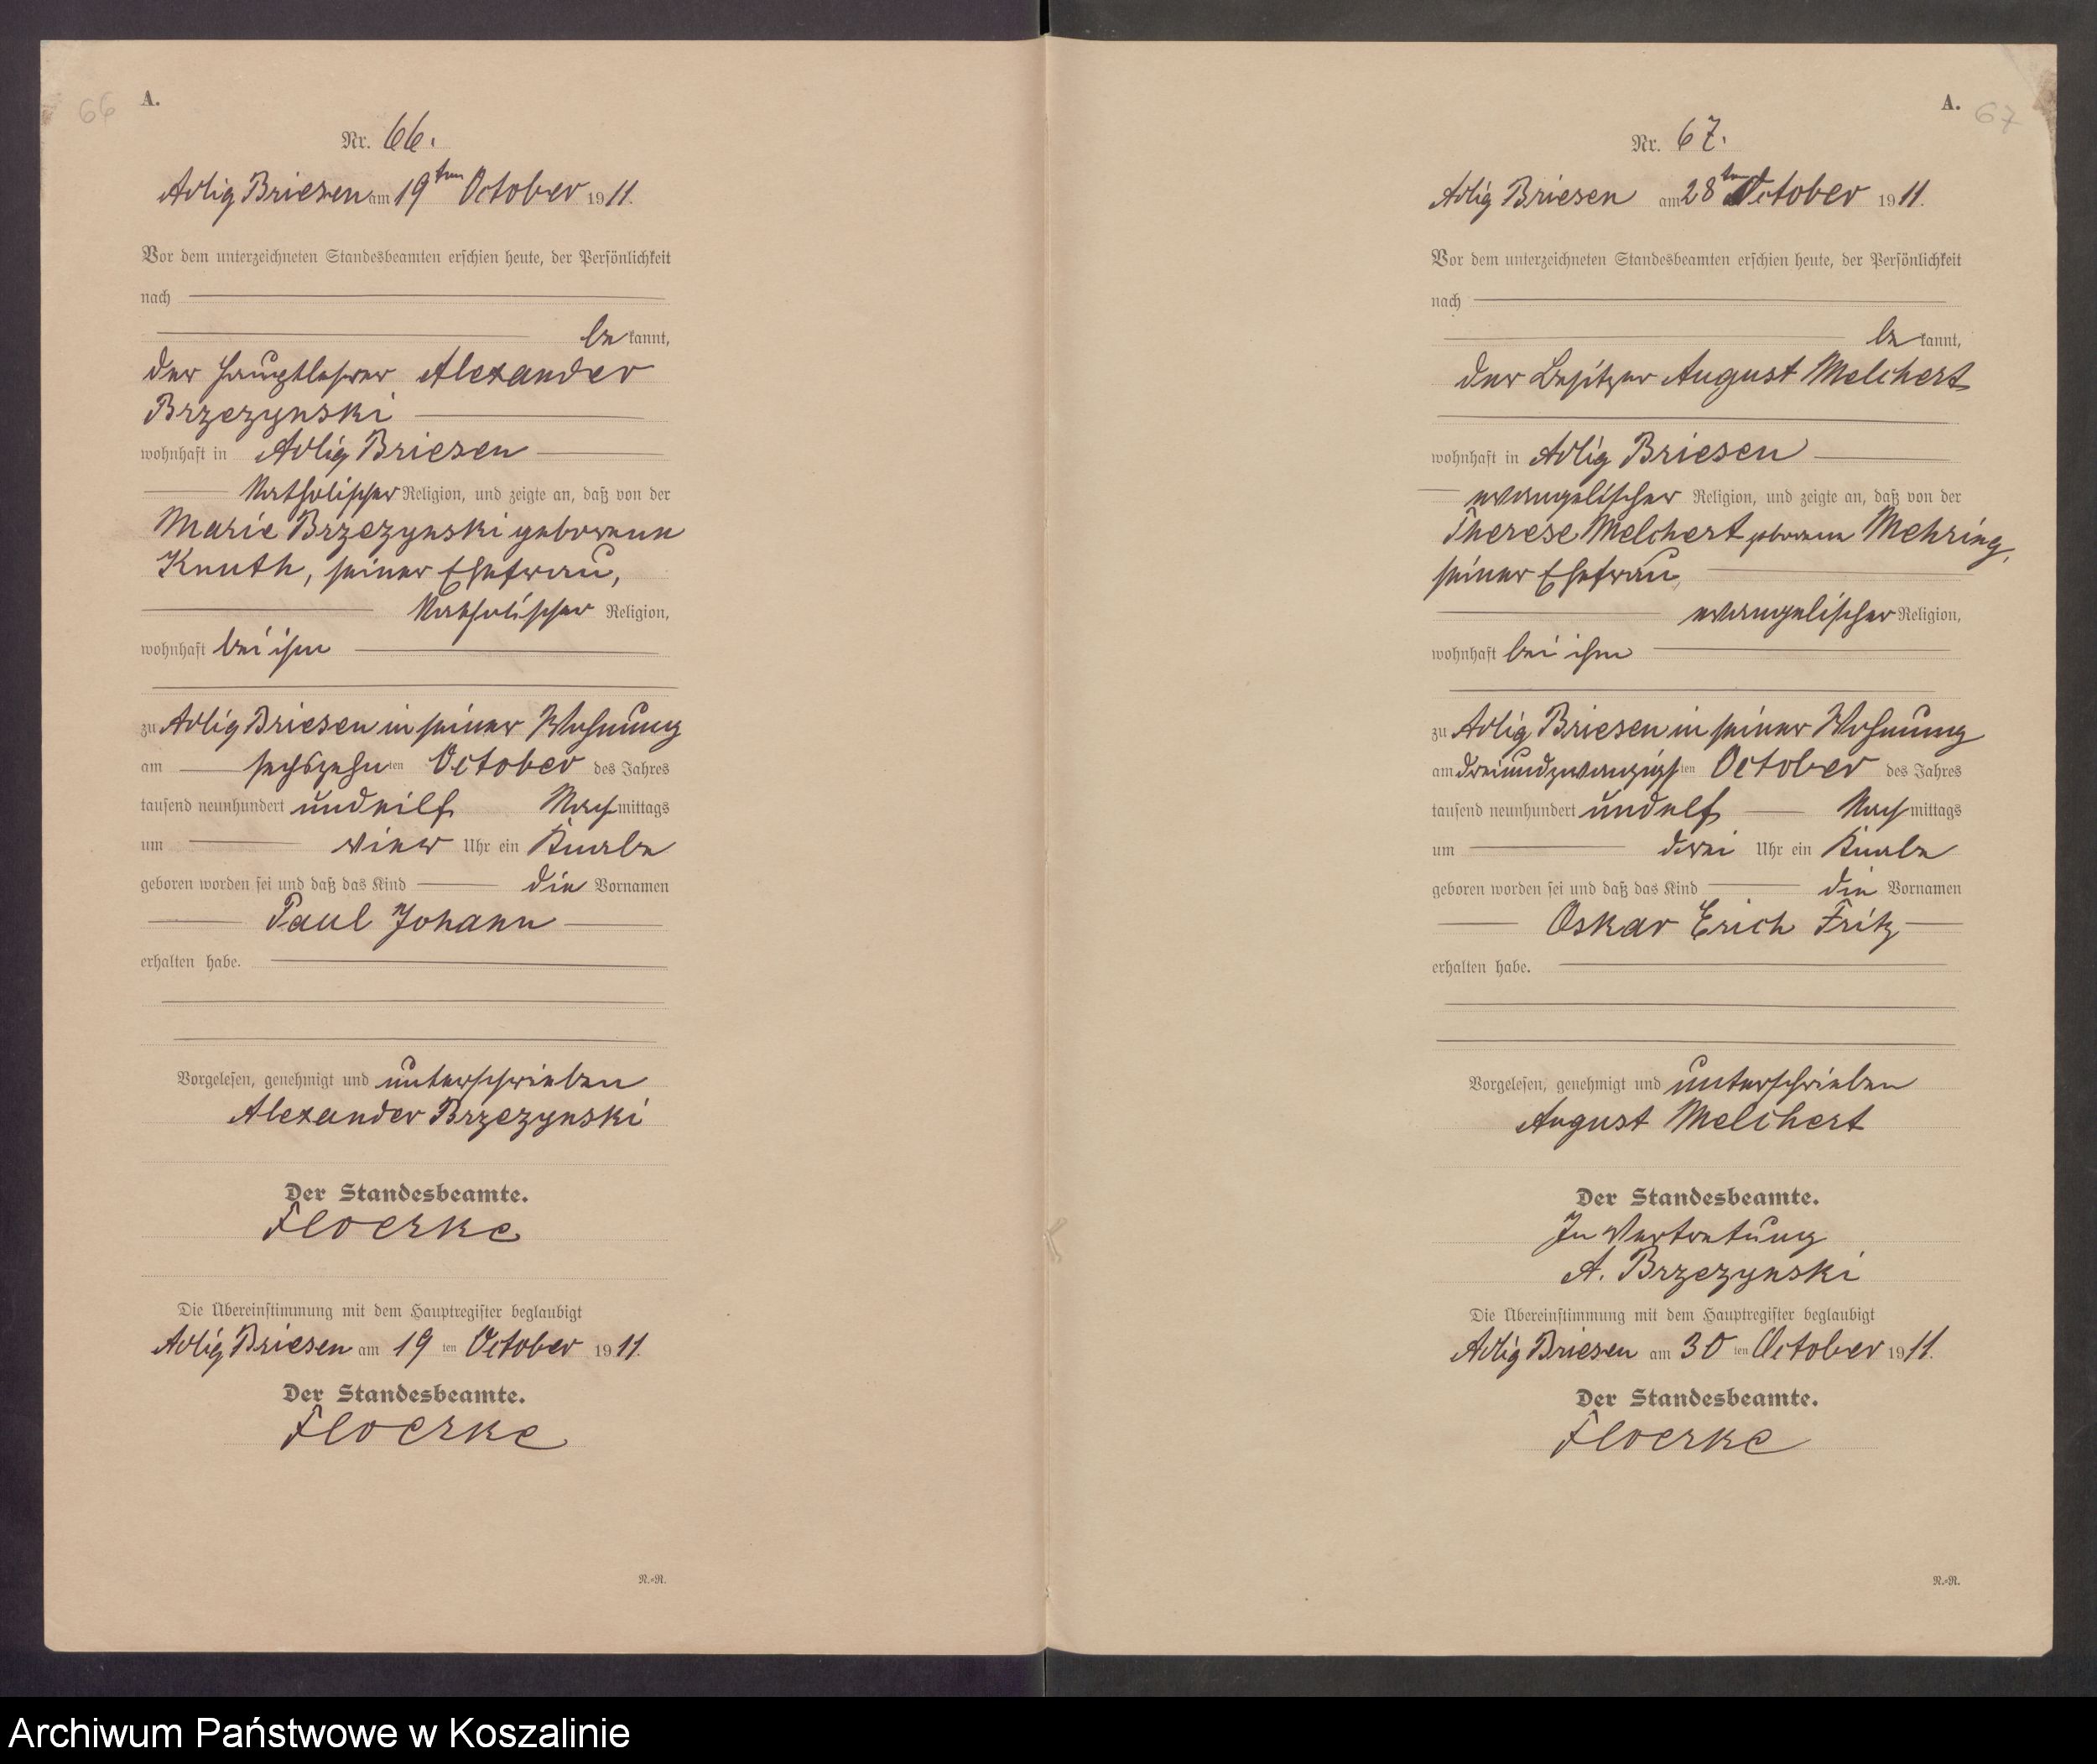 66
A.
Nr. 66.
Adlig Briesen am 19ten October 1911.
Vor dem unterzeichneten Standesbeamten erschien heute, der Persönlichkeit
nach
be kannt,
der Hauptlehrer Alexander
Brzezynski
wohnhaft in Adlig Briesen
katholischer Religion, und zeigte an, daß von der
Marie Brzezynski geborene
Knuth, seiner Ehefrau,
katholischer Religion,
wohnhaft bei ihm
zu Adlig Briesen in seiner Wohnung
am sechszehn ten October des Jahres
tausend neunhundert und eilf Nach mittags
um vier Uhr ein Knabe
geboren worden sei und daß das Kind die Vornamen
Paul Johann
erhalten habe.
Vorgelesen, genehmigt und unterschrieben
Alexander Brzezynski
Der Standesbeamte.
Floerke
Die Übereinstimmung mit dem Hauptregister beglaubigt
Adlig Briesen am 19 ten October 1911.
Der Standesbeamte.
Floerke
N.-N.
A.
67
Nr. 67.
Adlig Briesen am 28ten October 1911.
Vor dem unterzeichneten Standesbeamten erschien heute, der Persönlichkeit
nach
be kannt,
der Besitzer August Melchert
wohnhaft in Adlig Briesen
evangelischer Religion, und zeigte an, daß von der
Therese Melchert geborene Mehring,
seiner Ehefrau,
evangelischer Religion,
wohnhaft bei ihm
zu Adlig Briesen in seiner Wohnung
am dreiundzwanzigs ten October des Jahres
tausend neunhundert und elf Nach mittags
um drei Uhr ein Knabe
geboren worden sei und daß das Kind die Vornamen
Oskar Erich Fritz
erhalten habe.
Vorgelesen, genehmigt und unterschrieben
August Melchert
Der Standesbeamte.
In Vertretung
A. Brzezynski
Die Übereinstimmung mit dem Hauptregister beglaubigt
Adlig Briesen am 30 ten October 1911.
Der Standesbeamte.
Floerke
N.-N.
Archiwum Państwowe w Koszalinie